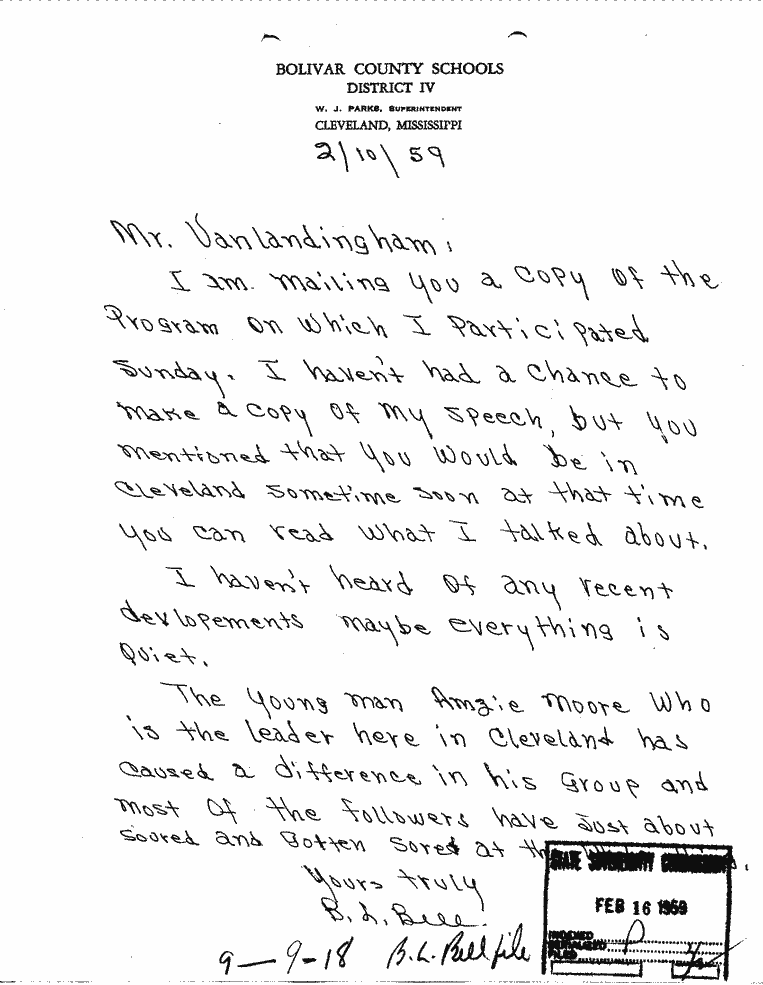 BOLIVAR COUNTY SCHOOLS
DISTRICT IV
W. J. PARKS, SUPERINTENDENT
CLEVELAND, MISSISSIPPI
2/10\59
Mr. Vanlandingham,
I am. mailing you a copy of the
Program on which I Participated
Sunday. I haven't had a Chance to
make a copy of my speech, but you
mentioned that you would be in
Cleveland sometime soon at that time
you can read what I talked about.
I haven't heard of any recent
devlopements maybe everything is
Quiet.
The young man Amzie Moore Who
is the leader here in Cleveland has
caused a difference in his Group and
most of the followers have just about
soured and Gotten Sored at the Whole thing.
Yours truly
B. L. Bell.
STATE SOVEREIGNTY COMMISSION
FEB 16 1959
INDEXED
SERIALIZED
FILED
9-9-18 B.L. Bell file